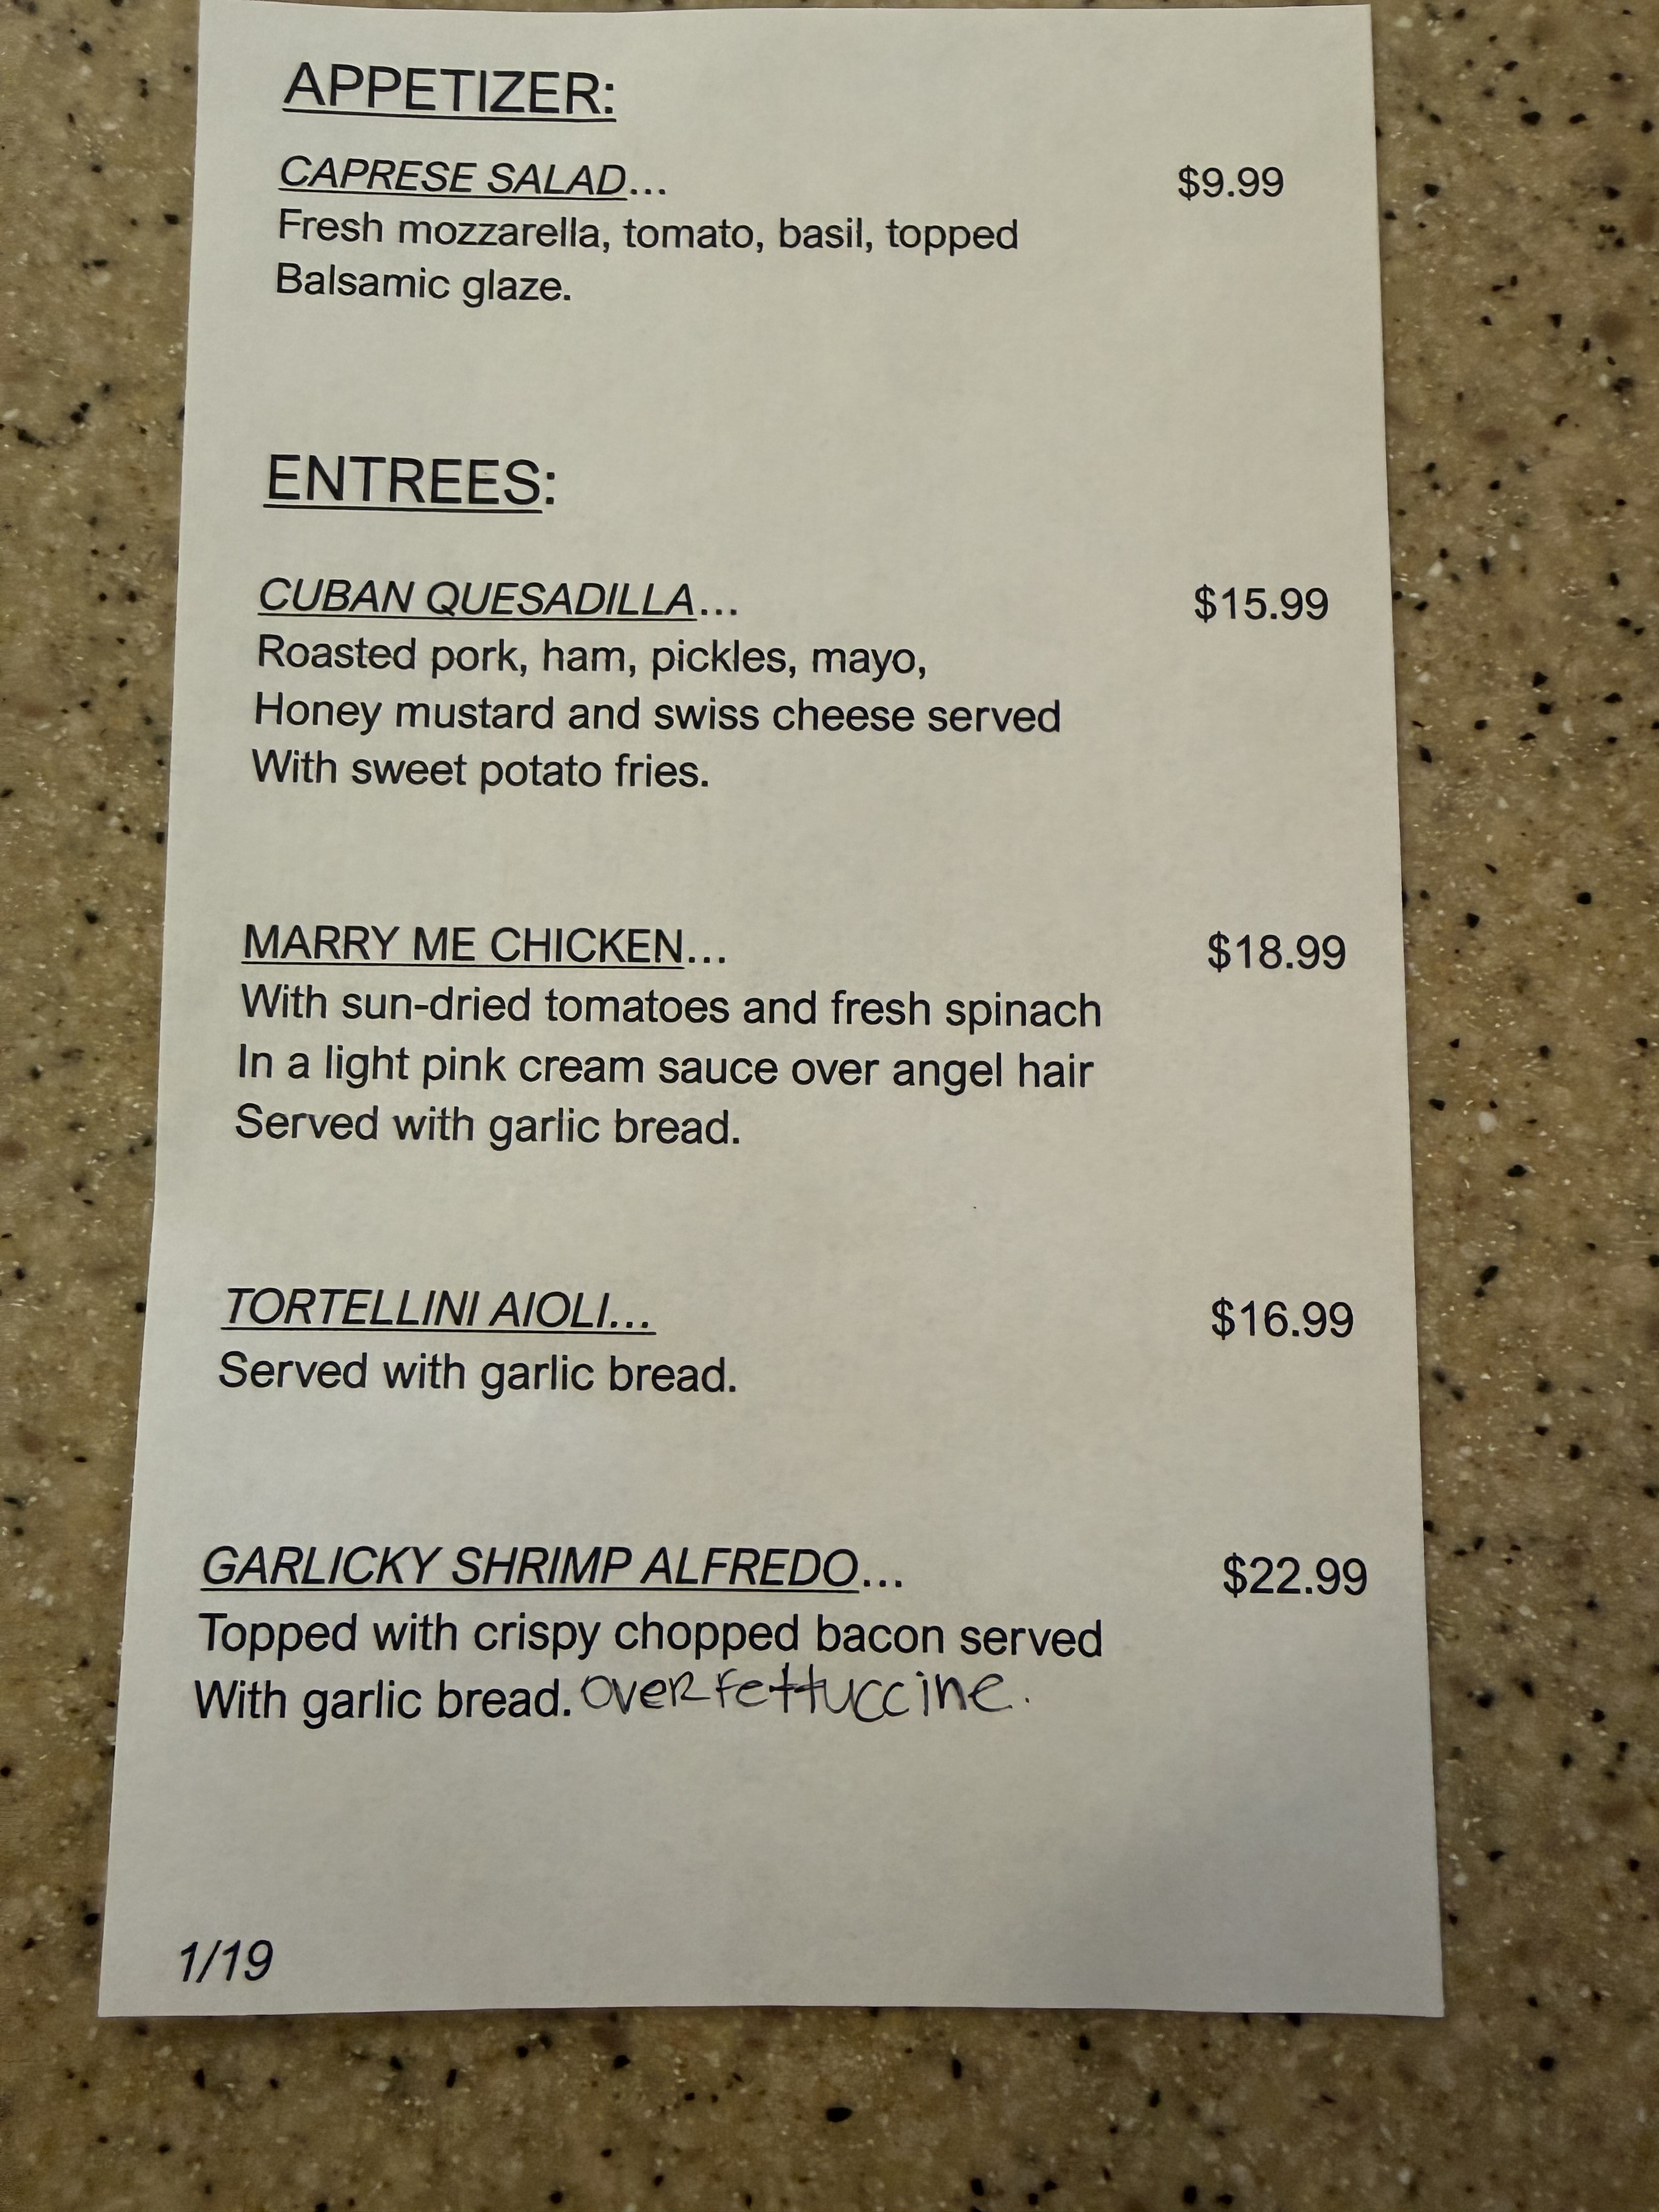 APPETIZER:
CAPRESE SALAD... $9.99
Fresh mozzarella, tomato, basil, topped
Balsamic glaze.
ENTREES:
CUBAN QUESADILLA... $15.99
Roasted pork, ham, pickles, mayo,
Honey mustard and swiss cheese served
With sweet potato fries.
MARRY ME CHICKEN... $18.99
With sun-dried tomatoes and fresh spinach
In a light pink cream sauce over angel hair
Served with garlic bread.
TORTELLINI AIOLI... $16.99
Served with garlic bread.
GARLICKY SHRIMP ALFREDO... $22.99
Topped with crispy chopped bacon served
With garlic bread. over fettuccine.
1/19